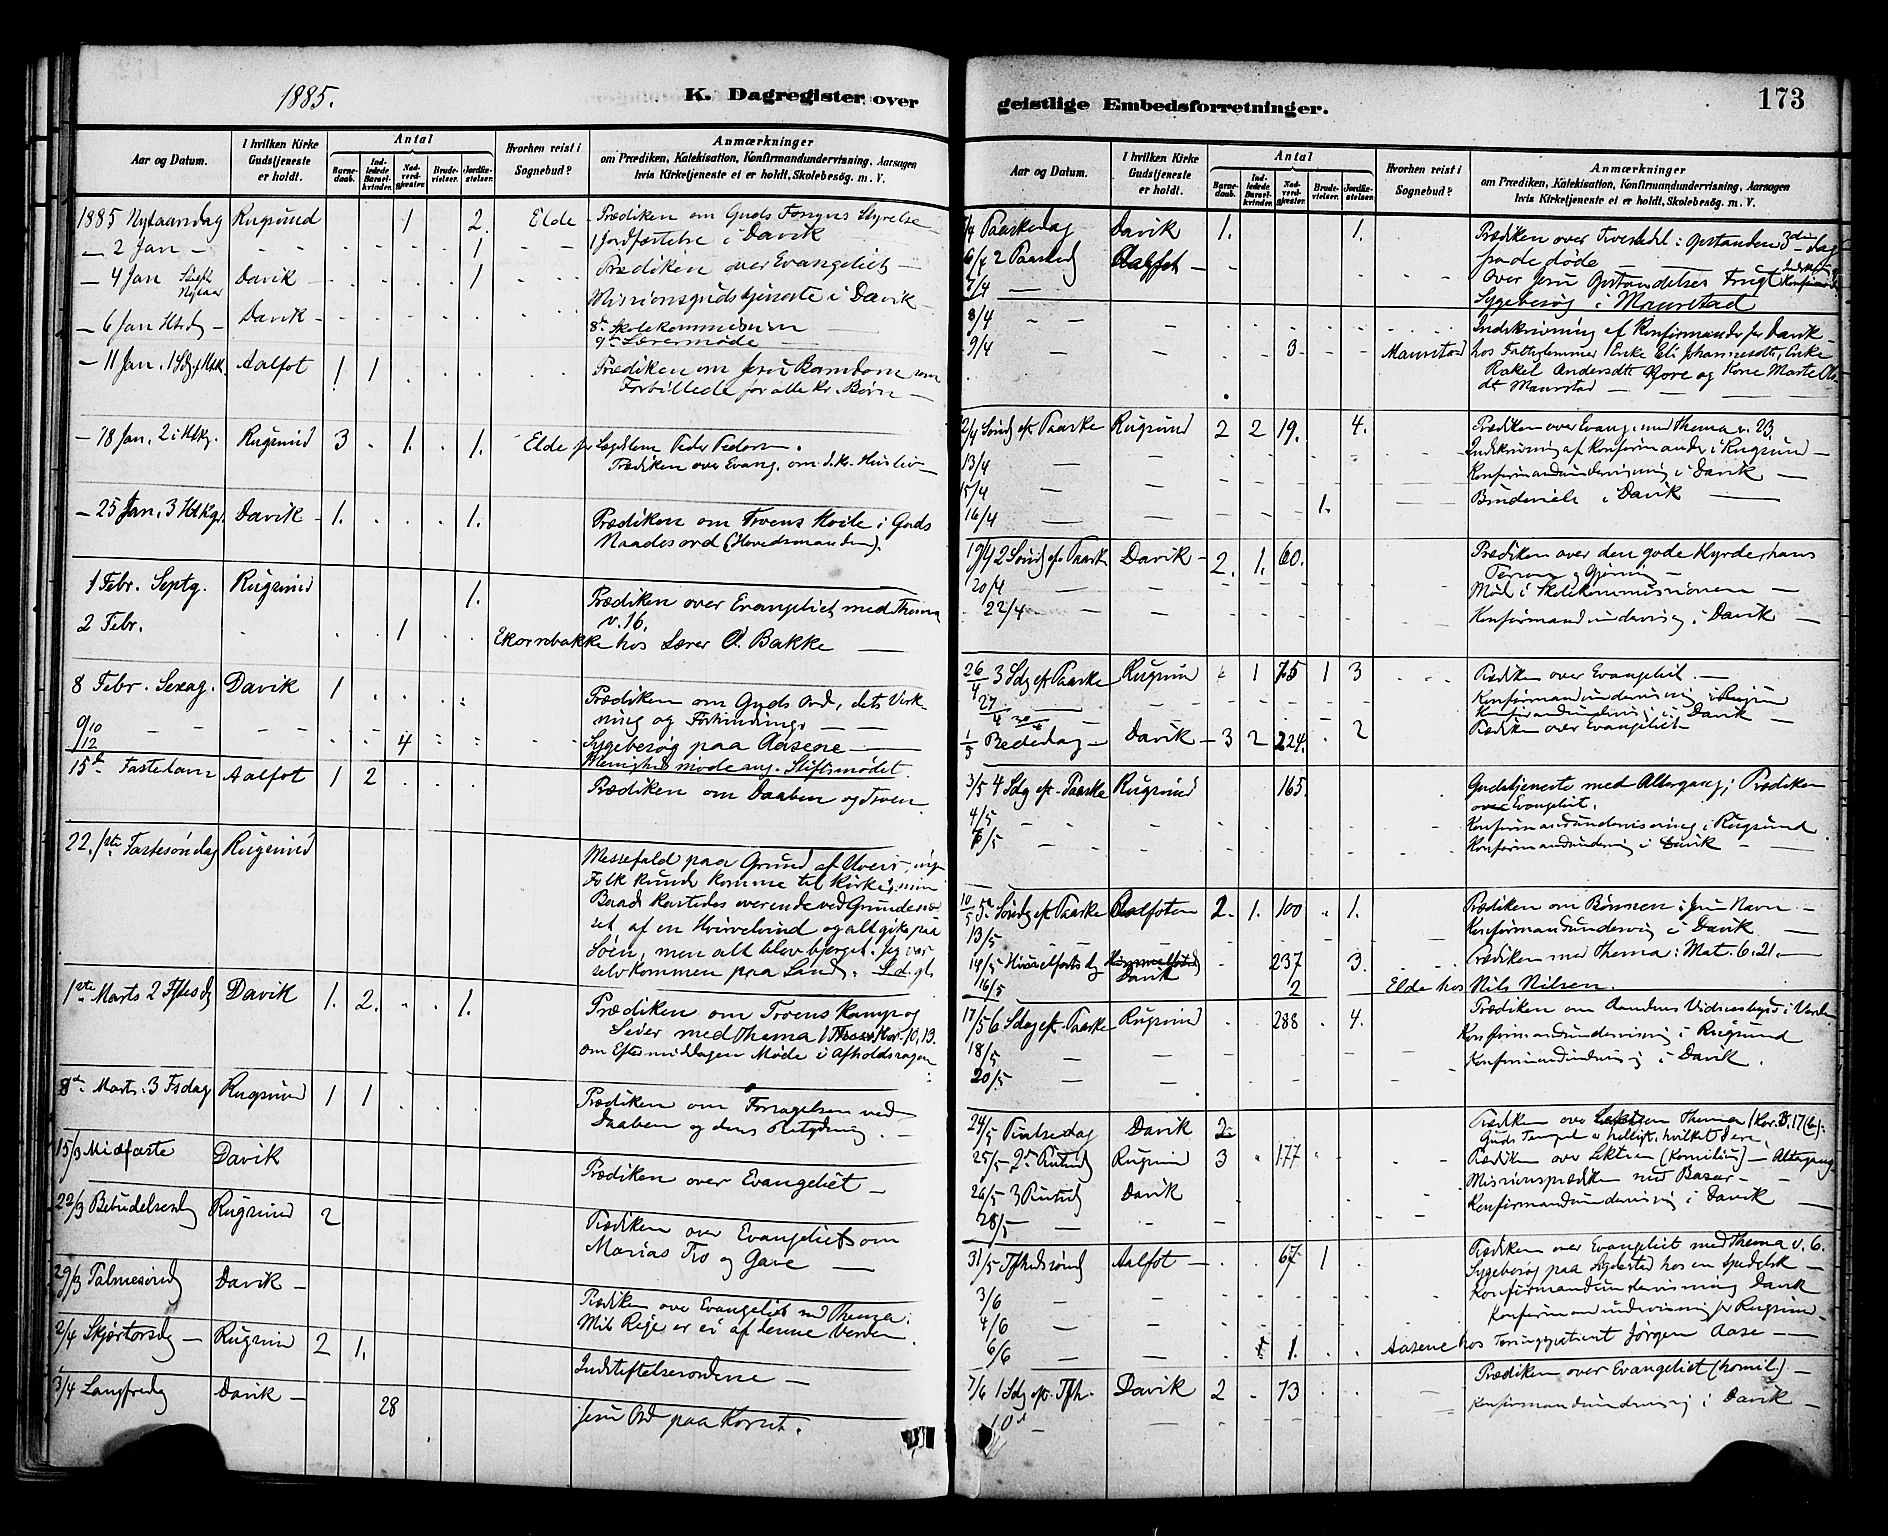 1885.
K. Dagregister over
Aar og Datum.
I hvilken Kirke Gudstjeneste er holdt.
Antal
Barne-daab.
Ind-ledede Barsel-kvinder.
Nad-verd-gjester.
Brude-vielser.
Jordfæ-stelser.
Hvorhen reist i Sognebud?
Anmærkninger
om Prædiken, Katekisation, Konfirmandundervisning, Aarsagen
hvis Kirketjeneste ei er holdt, Skolebesøg. m. V.
1885 Nytaarsdag Rugsund 1 2. Elde Prædiken om Guds Forsyns Styrelse
— 2 Jan — 1 1 Jordfæstelse i Davik
— 4 Jan Davik 1 Prædiken over Evangeliet —
Missionsgudstjeneste i Davik
— 6 Jan Davik
8de Skolekommission
9de Lærermøde —
— 11 Jan. Aalfot 1 1 Prædiken om Jesu Barndom som
Forbillede for alle kr. Børn —
— 18 Jan. Rugsund 3 1. 1. Elde Peder Pedersen.
Prædiken over Evang. om d. kr. Husliv —
— 25 Jan, 3 Davik 1. 1. Prædiken om Troens Hvile i Guds
Naadesord (Høvedsmanden).
1 Febr. Septg. Rugsund 1. Prædiken over Evangeliet med Thema
v. 16.
2 Febr. 1 Ekornebakke hos Lærer O. Bakke —
8 Febr. Sexag. Davik 1 Prædiken om Guds Ord, dets Virk-
ning og Forhindring.
4 Sygebesøg paa Aasene —
Menighedsmøde ang. Stiftsmødet.
15de Fastelavn Aalfot 1 2 Prædiken om Daaben og Troen
22. 1ste Fastesøndag Rugsund
Messefald paa Grund af Uveir,
Folk kunde komme til Kirke, min
Baad kastedes overende ved
af en Hvirvelvind og alt gik paa
Søen, men alt blev bjerget. Jeg var
selv kommen paa Land.
1ste Marts 2 Davik 1. 2. 1. Prædiken om Troens Kamp og
Seier med Thema 1 Kor. 10, 13.
om Eftermiddagen Møde i Afholdssagen
8de Marts. 3 Rugsund 1 1 Prædiken om Forsagelsen ved
Daaben og dens Betydning.
15/3 Midfaste Davik Prædiken over Evangeliet —
22/3 Bebudelsesdg Rugsund 2 Prædiken over Evangeliet om
Marias Tro og Gave —
29/3 Palmesønd Davik — Prædiken over Evangeliet med Thema:
Mit Rige er ei af denne Verden.
2/4 Skjærtorsdg — Rugsund 2 1. Indstiftelsesordene —
3/4 Langfredg Davik — 28 Jesu Ord paa Korset.
geistlige Embedsforretninger.
173
Aar og Datum.
I hvilken Kirke Gudstjeneste er holdt.
Antal
Barne-daab.
Ind-ledede Barsel-kvinder.
Nad-verd-gjester.
Brude-vielser.
Jordfæ-stelser.
Hvorhen reist i Sognebud?
Anmærkninger
om Prædiken, Katekisation, Konfirmandundervisning, Aarsagen
hvis Kirketjeneste ei er holdt, Skolebesøg. m. V.
Paaskedag Davik 1. 1. Prædiken over Opstanden 3die Dag
fra de døde
6/4 2 Paasked Aalfot — Over Jesu Opstandelses Frugt
7/4 — Sygebesøg i Maurstad
8/4 — — Indskrivning af Konfirmander for Davik —
9/4 — — 3 Maurstad hos Enke Eli Johannesdt, Enke
Rakel Andersdt og Kone Marte
Maurstad —
Sønd ef. Paaske Rugsund 2 2 19. 4. Prædiken over Evang. med Thema v. 23.
13/4 — — Indskrivning af Konfirmander i Rugsund —
15/4 — — Konfirmandundervisning i Davik —
16/4 — — 1. Brudevielse i Davik —
19/4 2 Sønd ef. Paaske Davik — 2. 1. 60. Prædiken over den gode Hyrde, hans
Person og Gjerning —
20/4 — — Møde i Skolekommissionen —
22/4 — — Konfirmandundervisng i Davik —
26/4 3 Sdg ef. Paaske Rugsund 1 75 1 3 Prædiken over Evangeliet. —
27/4 — Konfirmandundervisning i Rugsund
Konfirmandundervisng i Davik —
1/5 Bededag — Davik — 3 2 224. 2 Prædiken over Evangeliet
3/5 4 Sdg ef. Paaske Rugsund 165. Gudstjeneste med Altergang; Prædiken
over Evangeliet.
4/5 — Konfirmandundervisning i Rugsund
6/5 — Konfirmandundervisng i Davik —
10/5 5te Søndg ef. Paaske Aalfoten 2. 1. 100 1. Prædiken om Bønnen i Jesu Navn —
13/5 — — Konfirmandundervisng i Davik —
14/5 Davik 237 3. Prædiken med Thema: Mat. 6. 21. —
16/5 2 Elde hos Nils Nilsen.
17/5 6 Sdag ef. Paaske Rugsund 288 4. Prædiken om Aandens Vidnesbyrd i Verden
18/5 — — Konfirmandundervisning i Rugsund
20/5 — — Konfirmandundervisng i Davik.
24/5 Pintsedag Davik 2 Prædiken over Thema 1 Kor. 3. 17
Guds Tempel er helligt, hvilket I ere.
25/5 2 Pintsed Rugsund 3 177 Prædiken over Lektien (Kornelius) — Altergang
26/5 3 Pintsed Davik Missionsprædiken med Basar —
28/5 — — Konfirmandundervisng i Davik —
31/5 Aalfot — 67 1 Prædiken over Evangeliet med Thema v. 6.
Sygebesøg paa hos en Spedalsk —
3/6 — — Konfirmandundervisning Davik
4/6 — — Konfirmandundervisning for Rugsund.
6/6 — — 1. Aasene hos Jørgen Aase —
7/6 1 Sdg ef. Davik 2 73 Prædiken over Evangeliet (homil.) —
10de — — Konfirmandundervisng i Davik —